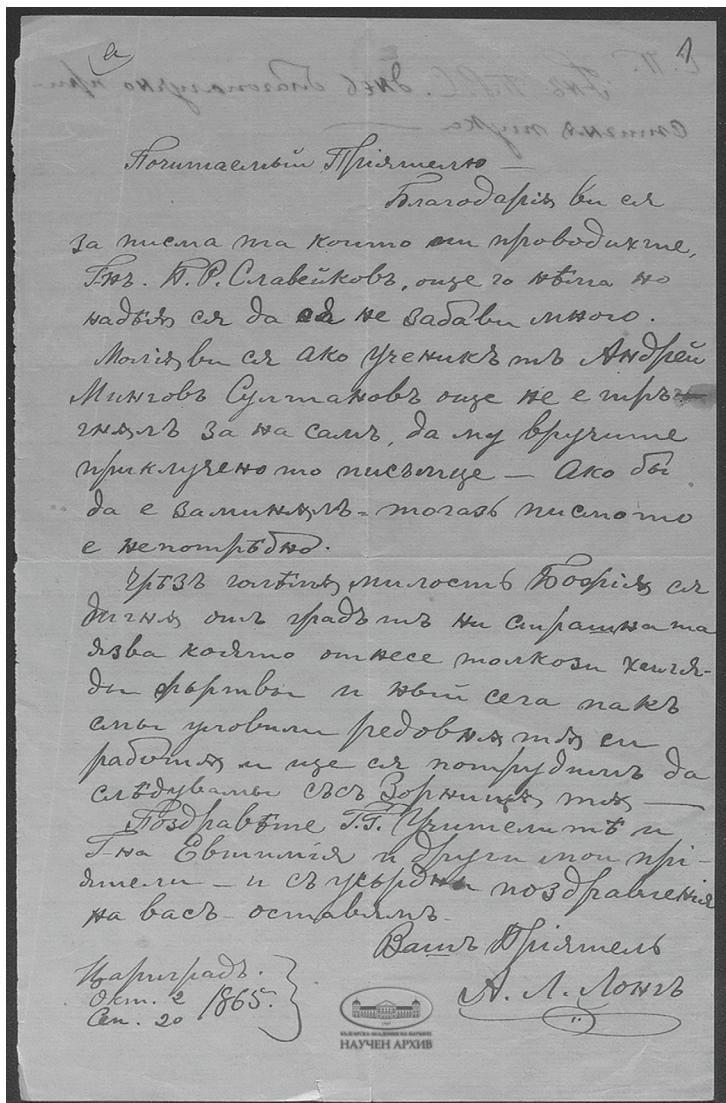 а
1
Почитаемый Пріятелю —
Благодариѭ ви ся
за писма та които ми проводихте,
Гнъ. П. Р. Славейковъ, още го нѣма но
надѣѭ ся да не забави много.
Молѭ ви ся ако ученикътъ Андрей
Минговъ Султановъ още не е тръ-
гнѫлъ за на самъ, да му вручите
приключено то писъмце — Ако бы
да е заминѫлъ - тогазь писмото
е непотрѣбно.
Чрѣзъ голѣмѫ милость Божіѭ ся
дигнѫ отъ градътъ ни страшна та
язва която отнесе толкози хиля-
ды жъртвы и ный сега пакъ
смы уловили редовнѫ тѫ си
работѫ и ще ся потрудимъ да
слѣдувамы съсъ Зорницѫ тѫ —
Поздравѣте Г.Г. Учителитѣ и
Г-на Евтимія и други мои прі-
ятели — и съ усърдны поздравленія
на васъ оставямъ.
Вашъ Пріятель
А. Л. Лонгъ
Цариградъ.
Окт. 2
Сеп. 20 1865.
БЪЛГАРСКА АКАДЕМИЯ НА НАУКИТЕ
НАУЧЕН АРХИВ